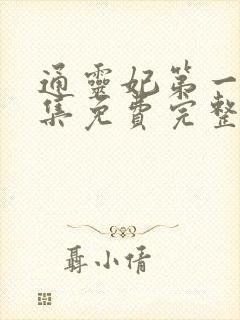 通靈妃第一
集免費完整
聶小倩